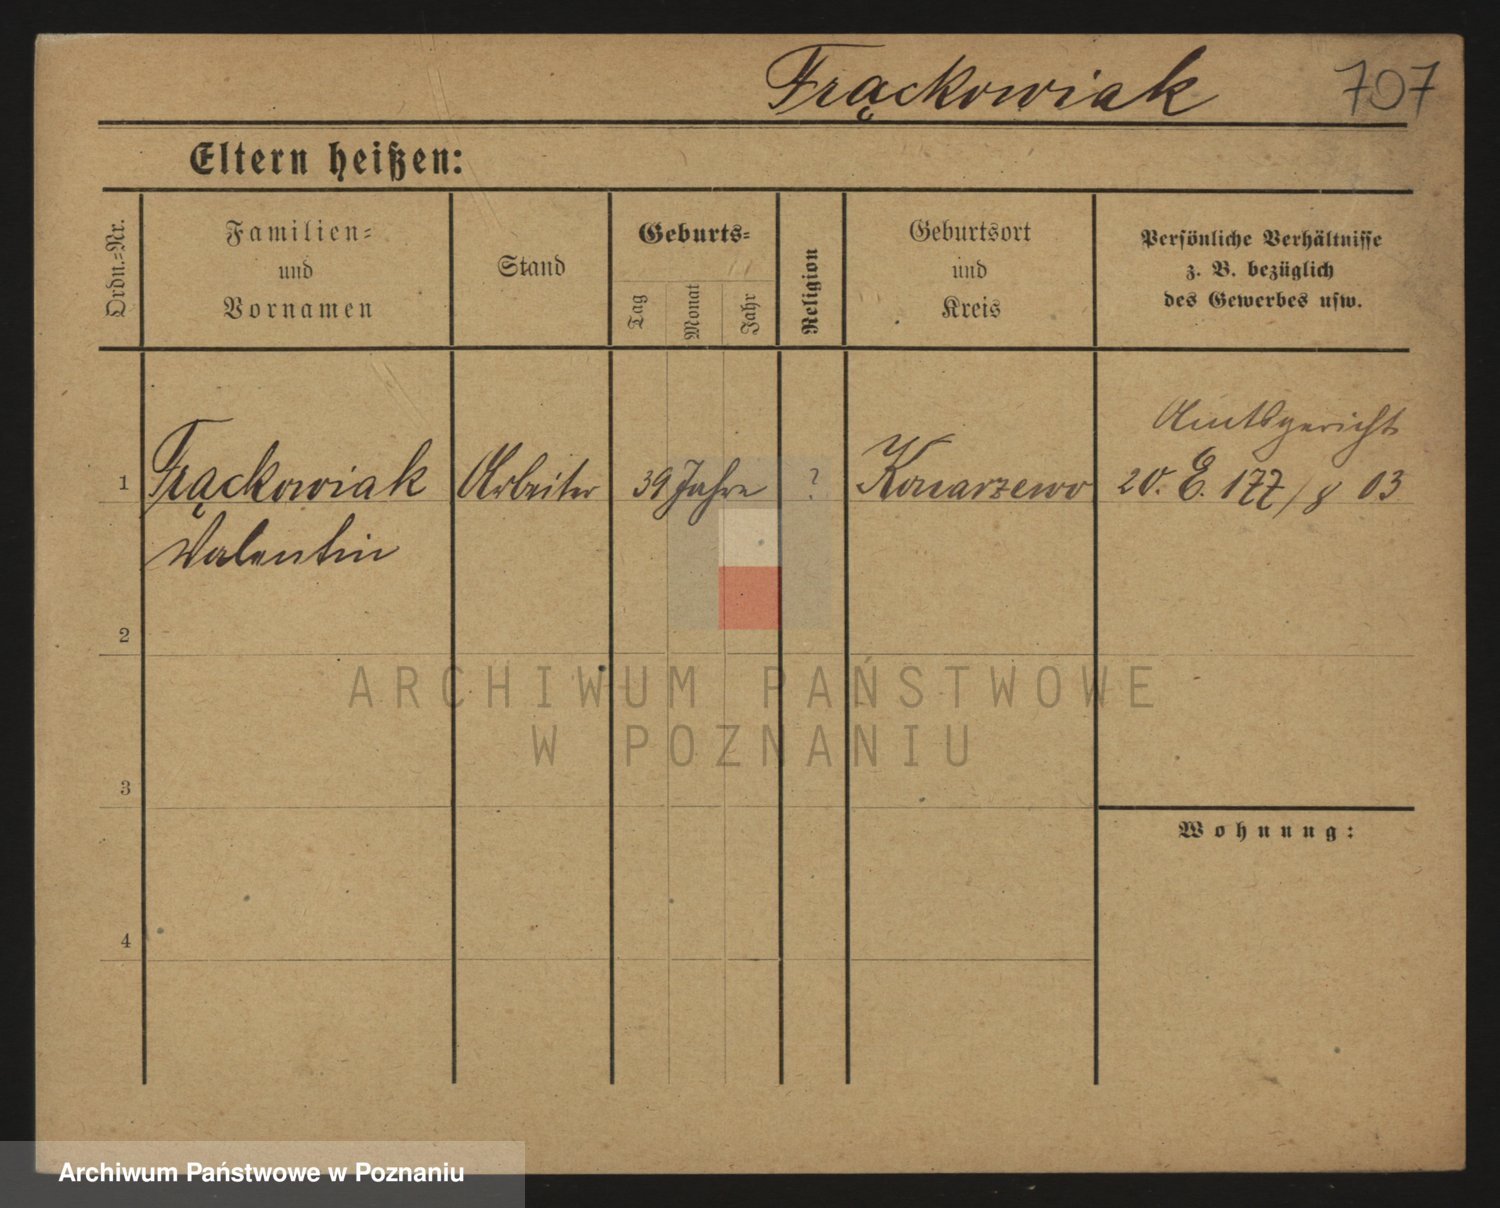 Frąckowiak 707
Eltern heißen:
Ordn.-Nr.
Familien-
und
Vornamen
Stand
Geburts-
Tag
Monat
Jahr
Religion
Geburtsort
und
Kreis
Persönliche Verhältnisse
z. B. bezüglich
des Gewerbes usw.
Amtsgericht
1 Frąckowiak Arbeiter 39 Jahre ? Konarzewo 20. E. 177/8 03
Valentin
2
ARCHIWUM PAŃSTWOWE
W POZNANIU
3
Wohnung:
4
Archiwum Państwowe w Poznaniu